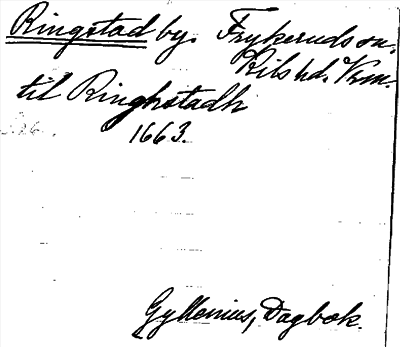 Ringstad by. Frykeruds sn,
Kils hd. Vrm.
til Ringhstadh
1663.
Gyllenius, Dagbok.